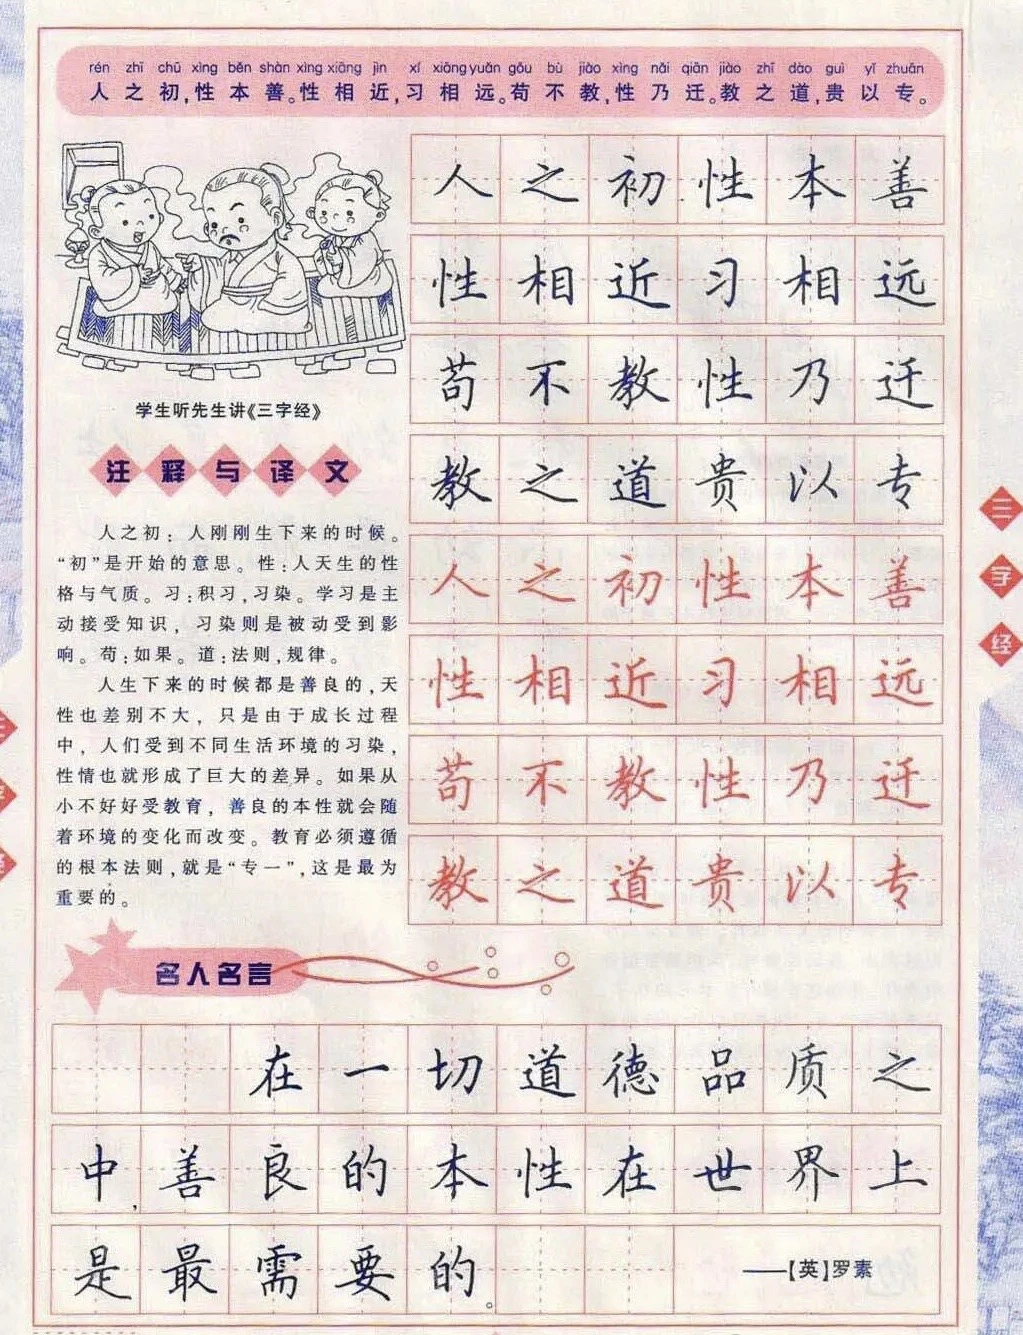 rén zhī chū xìng běn shàn xìng xiāng jìn xí xiāng yuǎn gǒu bù jiào xìng nǎi qiān jiào zhī dào guì yǐ zhuān
人之初,性本善。性相近,习相远。苟不教,性乃迁。教之道,贵以专。
人之初性本善
性相近习相远
苟不教性乃迁
教之道贵以专
人之初性本善
性相近习相远
苟不教性乃迁
教之道贵以专
学生听先生讲《三字经》
注释与译文
人之初：人刚刚生下来的时候。
“初”是开始的意思。性：人天生的性
格与气质。习：积习,习染。学习是主
动接受知识，习染则是被动受到影
响。苟：如果。道：法则,规律。
人生下来的时候都是善良的,天
性也差别不大，只是由于成长过程
中，人们受到不同生活环境的习染，
性情也就形成了巨大的差异。如果从
小不好好受教育，善良的本性就会随
着环境的变化而改变。教育必须遵循
的根本法则,就是“专一”,这是最为
重要的。
三字经
名人名言
在一切道德品质之
中,善良的本性在世界上
是最需要的。
——[英]罗素